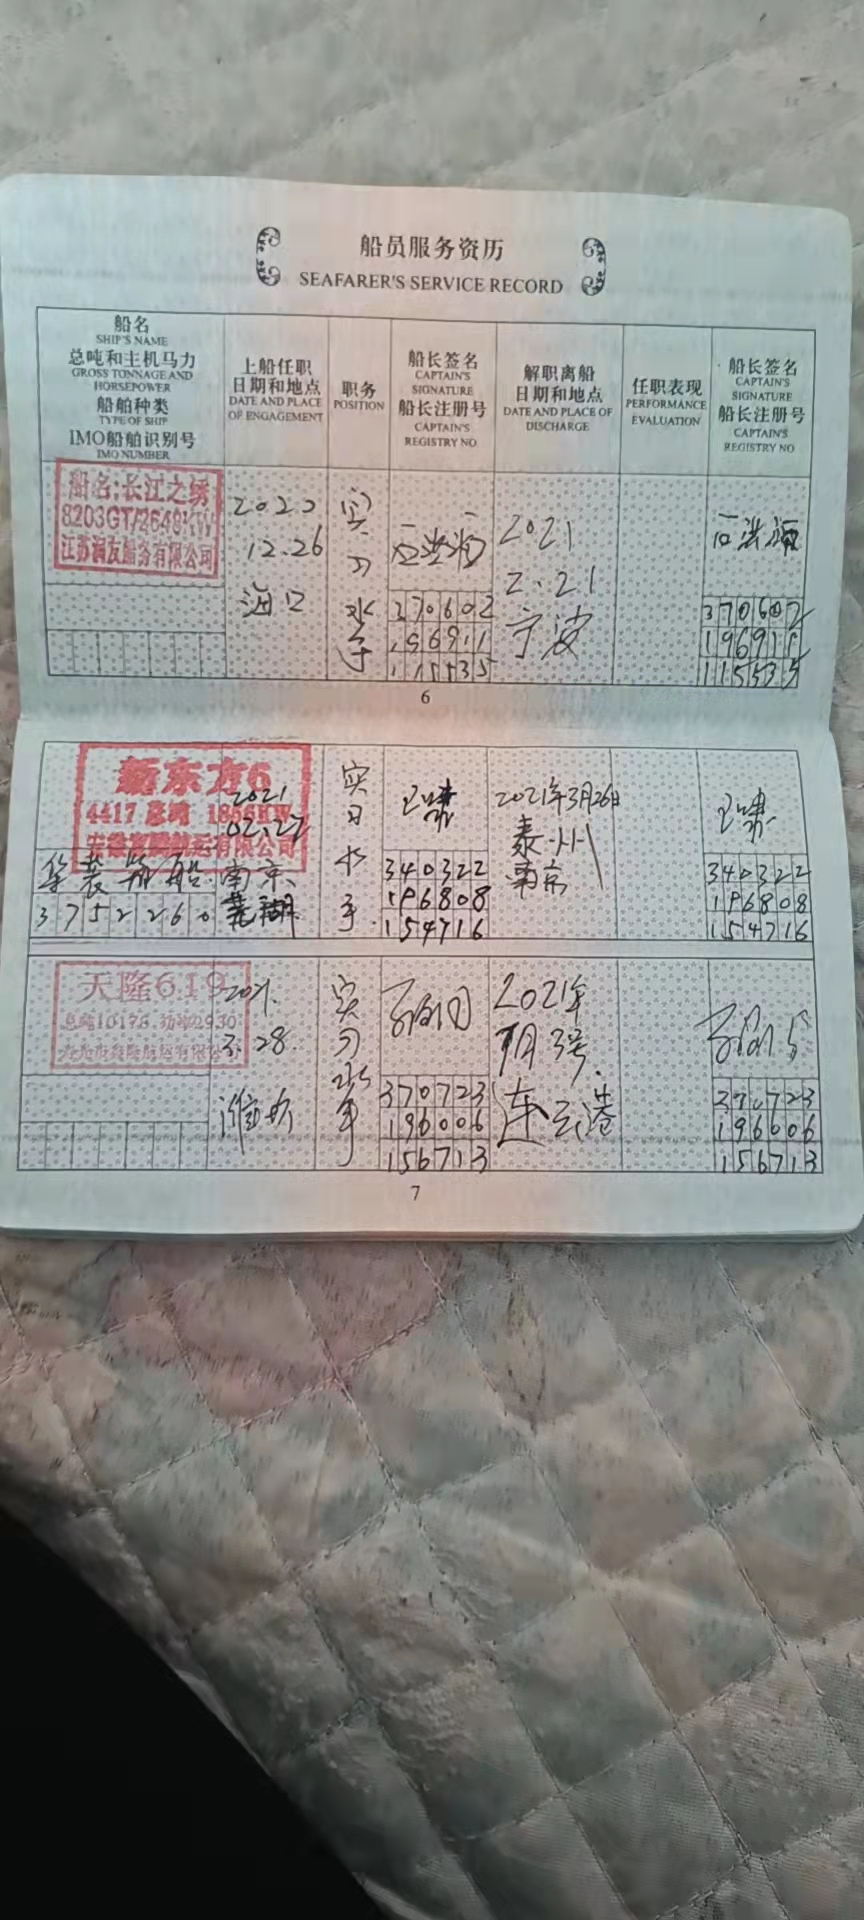 船员服务资历
SEAFARER'S SERVICE RECORD
船名
SHIP'S NAME
总吨和主机马力
GROSS TONNAGE AND
HORSEPOWER
船舶种类
TYPE OF SHIP
IMO船舶识别号
IMO NUMBER
上船任职
日期和地点
DATE AND PLACE
OF ENGAGEMENT
职务
POSITION
船长签名
CAPTAIN'S
SIGNATURE
船长注册号
CAPTAIN'S
REGISTRY NO
解职离船
日期和地点
DATE AND PLACE OF
DISCHARGE
任职表现
PERFORMANCE
EVALUATION
船长签名
CAPTAIN'S
SIGNATURE
船长注册号
CAPTAIN'S
REGISTRY NO
船名:长江之绣
8203GT/2648KW
江苏润友船务有限公司
12.26
海口
实习水手
370602
196911
115535
2021
2.21
370602
196911
115535
6
新东方6
4417 总吨
集装箱船
3752260
2021
02.27
南京
芜湖
实习水手
王啸
340322
196808
154716
2021年3月26日
泰州
南京
王啸
340322
196808
154716
天隆619
总吨10178
2021.
3.28.
实习水手
370723
196006
156713
2021年
连云港
370723
196006
156713
7